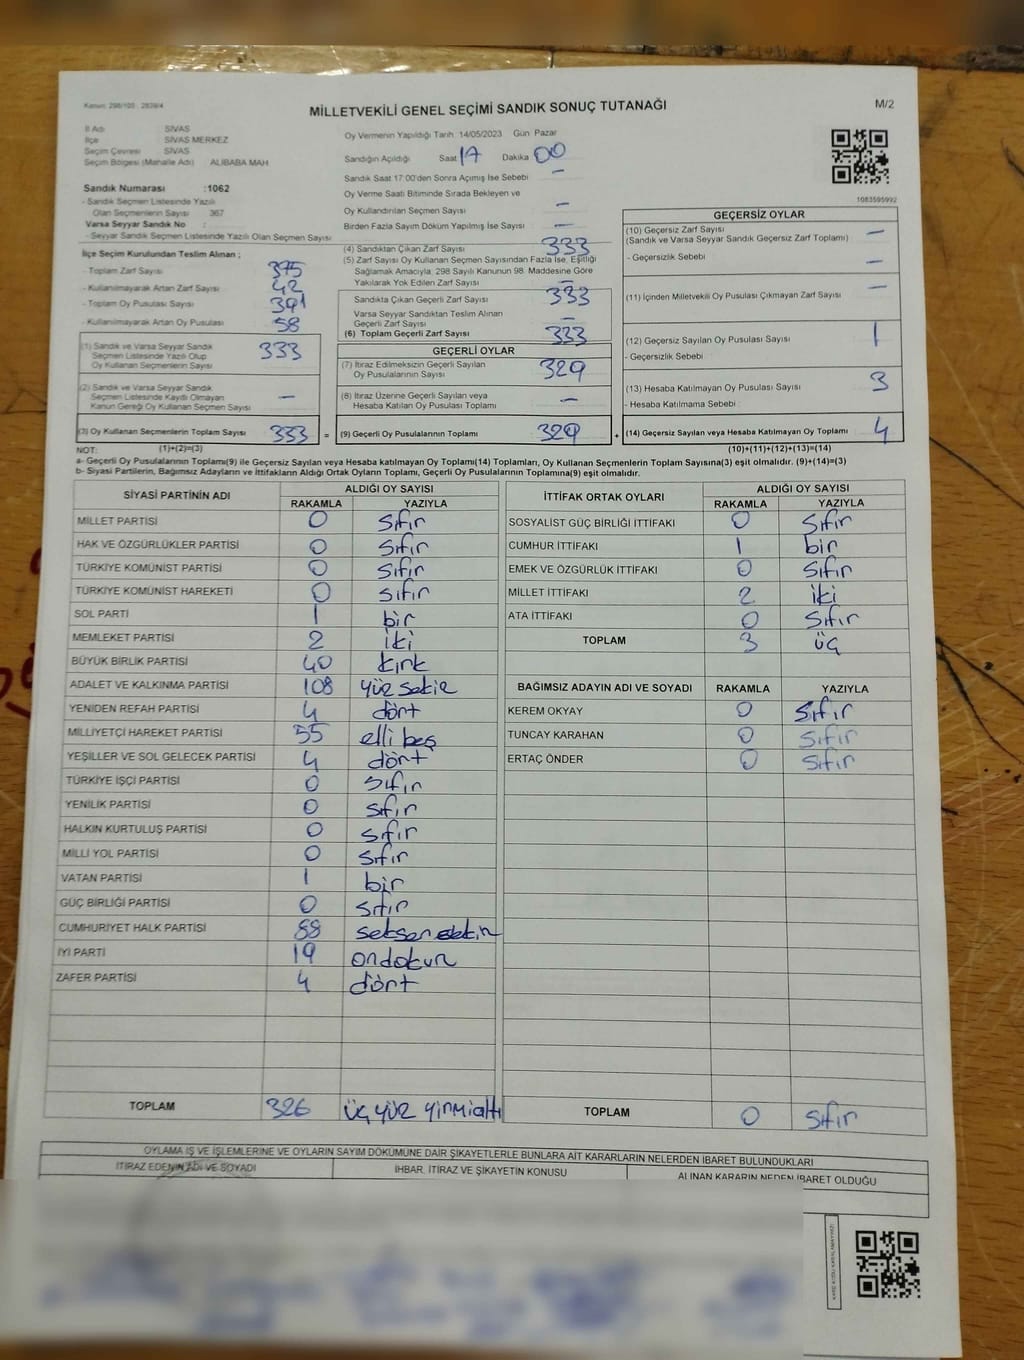 Kanun: 298/105 , 2839/4
MİLLETVEKİLİ GENEL SEÇİMİ SANDIK SONUÇ TUTANAĞI
M/2
İl Adı SİVAS
İlçe SİVAS MERKEZ
Seçim Çevresi SİVAS
Seçim Bölgesi (Mahalle Adı) ALİBABA MAH
Sandık Numarası :1062
- Sandık Seçmen Listesinde Yazılı
Olan Seçmenlerin Sayısı 367
Varsa Seyyar Sandık No :
- Seyyar Sandık Seçmen Listesinde Yazılı Olan Seçmen Sayısı
Oy Vermenin Yapıldığı Tarih 14/05/2023 Gün Pazar
Sandığın Açıldığı Saat 17 Dakika 00
Sandık Saat 17:00'den Sonra Açımış İse Sebebi –
Oy Verme Saati Bitiminde Sırada Bekleyen ve
Oy Kullandırılan Seçmen Sayısı –
Birden Fazla Sayım Döküm Yapılmış İse Sayısı –
1083595992
İlçe Seçim Kurulundan Teslim Alınan ;
- Toplam Zarf Sayısı 375
- Kullanılmayarak Artan Zarf Sayısı 42
- Toplam Oy Pusulası Sayısı 391
- Kullanılmayarak Artan Oy Pusulası 58
(1) Sandık ve Varsa Seyyar Sandık
Seçmen Listesinde Yazılı Olup
Oy Kullanan Seçmenlerin Sayısı 333
(2) Sandık ve Varsa Seyyar Sandık
Seçmen Listesinde Kaydı Olmayan
Kanun Gereği Oy Kullanan Seçmen Sayısı –
(3) Oy Kullanan Seçmenlerin Toplam Sayısı 333 =
(4) Sandıktan Çıkan Zarf Sayısı 333
(5) Zarf Sayısı Oy Kullanan Seçmen Sayısından Fazla İse, Eşitliği
Sağlamak Amacıyla, 298 Sayılı Kanunun 98. Maddesine Göre
Yakılarak Yok Edilen Zarf Sayısı –
Sandıkta Çıkan Geçerli Zarf Sayısı 333
Varsa Seyyar Sandıktan Teslim Alınan
Geçerli Zarf Sayısı –
(6) Toplam Geçerli Zarf Sayısı 333
GEÇERLİ OYLAR
(7) İtiraz Edilmeksizin Geçerli Sayılan
Oy Pusulalarının Sayısı 329
(8) İtiraz Üzerine Geçerli Sayılan veya
Hesaba Katılan Oy Pusulası Toplamı –
(9) Geçerli Oy Pusulalarının Toplamı 329 +
GEÇERSİZ OYLAR
(10) Geçersiz Zarf Sayısı
(Sandık ve Varsa Seyyar Sandık Geçersiz Zarf Toplamı) –
- Geçersizlik Sebebi –
(11) İçinden Milletvekili Oy Pusulası Çıkmayan Zarf Sayısı –
(12) Geçersiz Sayılan Oy Pusulası Sayısı 1
- Geçersizlik Sebebi
(13) Hesaba Katılmayan Oy Pusulası Sayısı 3
- Hesaba Katılmama Sebebi
(14) Geçersiz Sayılan veya Hesaba Katılmayan Oy Toplamı 4
NOT: (1)+(2)=(3) (10)+(11)+(12)+(13)=(14)
a- Geçerli Oy Pusulalarının Toplamı(9) ile Geçersiz Sayılan veya Hesaba katılmayan Oy Toplamı(14) Toplamları, Oy Kullanan Seçmenlerin Toplam Sayısına(3) eşit olmalıdır. (9)+(14)=(3)
b- Siyasi Partilerin, Bağımsız Adayların ve İttifakların Aldığı Ortak Oyların Toplamı, Geçerli Oy Pusulalarının Toplamına(9) eşit olmalıdır.
SİYASİ PARTİNİN ADI ALDIĞI OY SAYISI
RAKAMLA YAZIYLA
MİLLET PARTİSİ 0 sıfır
HAK VE ÖZGÜRLÜKLER PARTİSİ 0 sıfır
TÜRKİYE KOMÜNİST PARTİSİ 0 sıfır
TÜRKİYE KOMÜNİST HAREKETİ 0 sıfır
SOL PARTİ 1 bir
MEMLEKET PARTİSİ 2 iki
BÜYÜK BİRLİK PARTİSİ 40 kırk
ADALET VE KALKINMA PARTİSİ 108 yüz sekiz
YENİDEN REFAH PARTİSİ 4 dört
MİLLİYETÇİ HAREKET PARTİSİ 55 elli beş
YEŞİLLER VE SOL GELECEK PARTİSİ 4 dört
TÜRKİYE İŞÇİ PARTİSİ 0 sıfır
YENİLİK PARTİSİ 0 sıfır
HALKIN KURTULUŞ PARTİSİ 0 sıfır
MİLLİ YOL PARTİSİ 0 sıfır
VATAN PARTİSİ 1 bir
GÜÇ BİRLİĞİ PARTİSİ 0 sıfır
CUMHURİYET HALK PARTİSİ 88 seksen sekiz
İYİ PARTİ 19 ondokuz
ZAFER PARTİSİ 4 dört
TOPLAM 326 üç yüz yirmialtı
İTTİFAK ORTAK OYLARI ALDIĞI OY SAYISI
RAKAMLA YAZIYLA
SOSYALİST GÜÇ BİRLİĞİ İTTİFAKI 0 sıfır
CUMHUR İTTİFAKI 1 bir
EMEK VE ÖZGÜRLÜK İTTİFAKI 0 sıfır
MİLLET İTTİFAKI 2 iki
ATA İTTİFAKI 0 sıfır
TOPLAM 3 üç
BAĞIMSIZ ADAYIN ADI VE SOYADI RAKAMLA YAZIYLA
KEREM OKYAY 0 sıfır
TUNCAY KARAHAN 0 sıfır
ERTAÇ ÖNDER 0 sıfır
TOPLAM 0 sıfır
OYLAMA İŞ VE İŞLEMLERİNE VE OYLARIN SAYIM DÖKÜMÜNE DAİR ŞİKAYETLERLE BUNLARA AİT KARARLARIN NELERDEN İBARET BULUNDUKLARI
İTİRAZ EDENİN ADI VE SOYADI İHBAR, İTİRAZ VE ŞİKAYETİN KONUSU ALINAN KARARIN NEDEN İBARET OLDUĞU